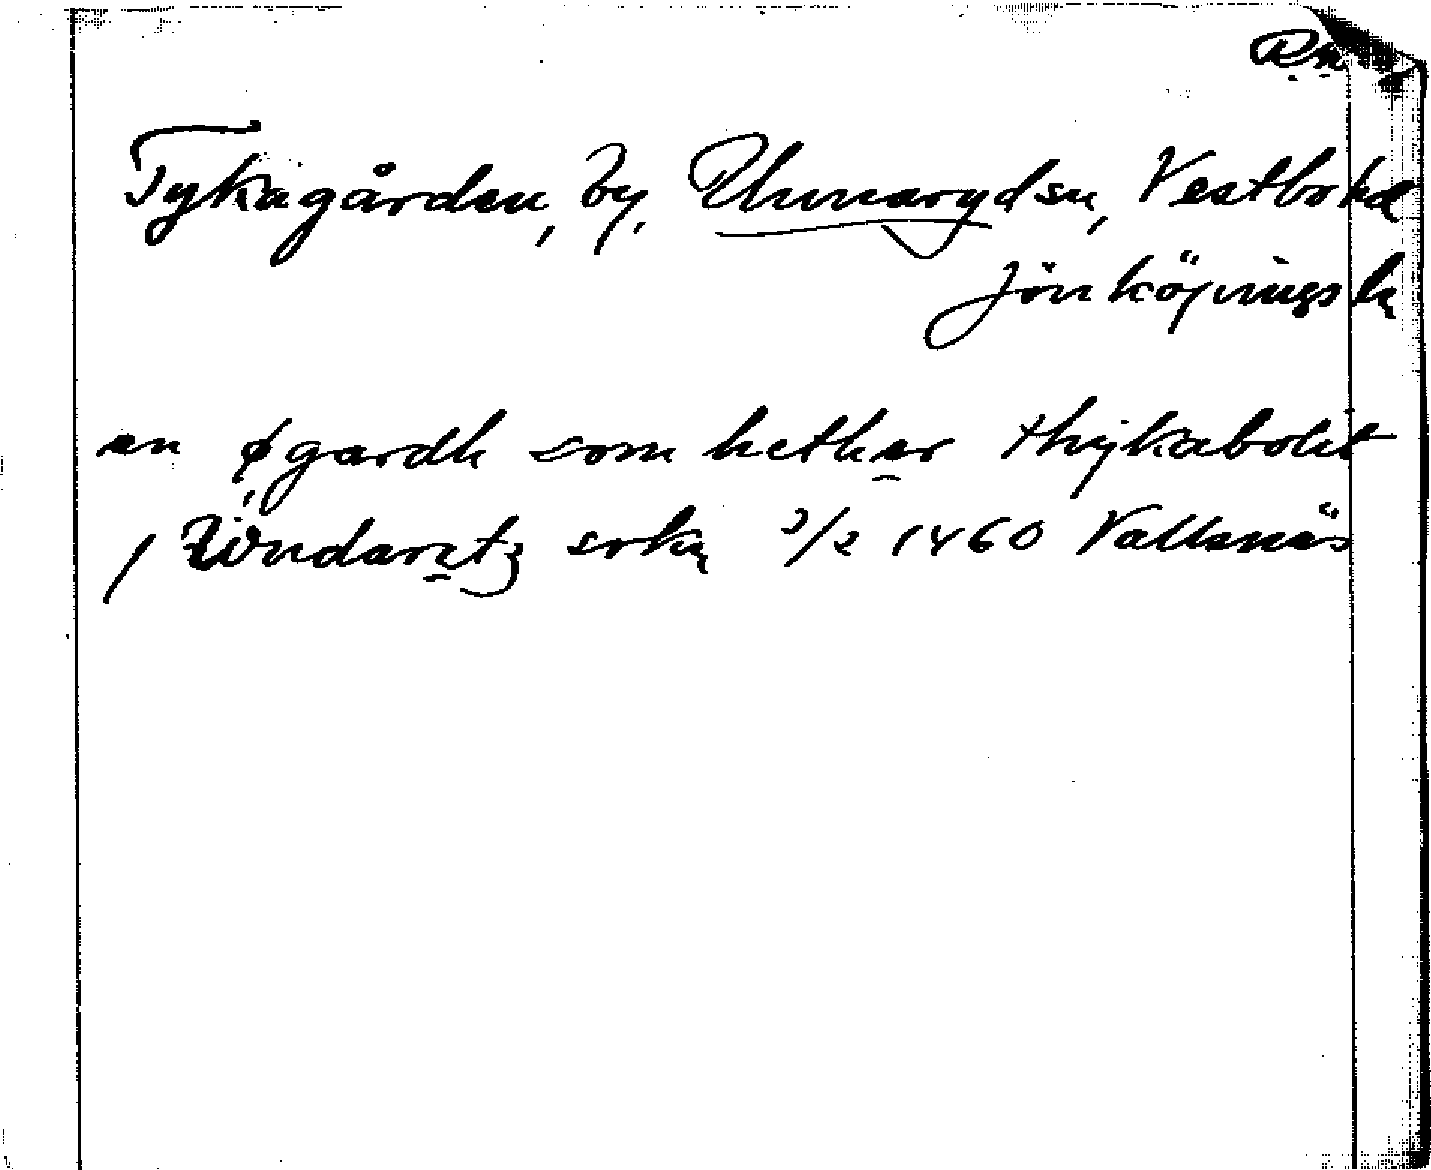 Rä
Tykagården, by, Unnarydsn, Vestbo hd
Jönköpings l.
en øgardh som hether thykabolit
j Wndaretz sokn 3/2 1460 Vallsnäs